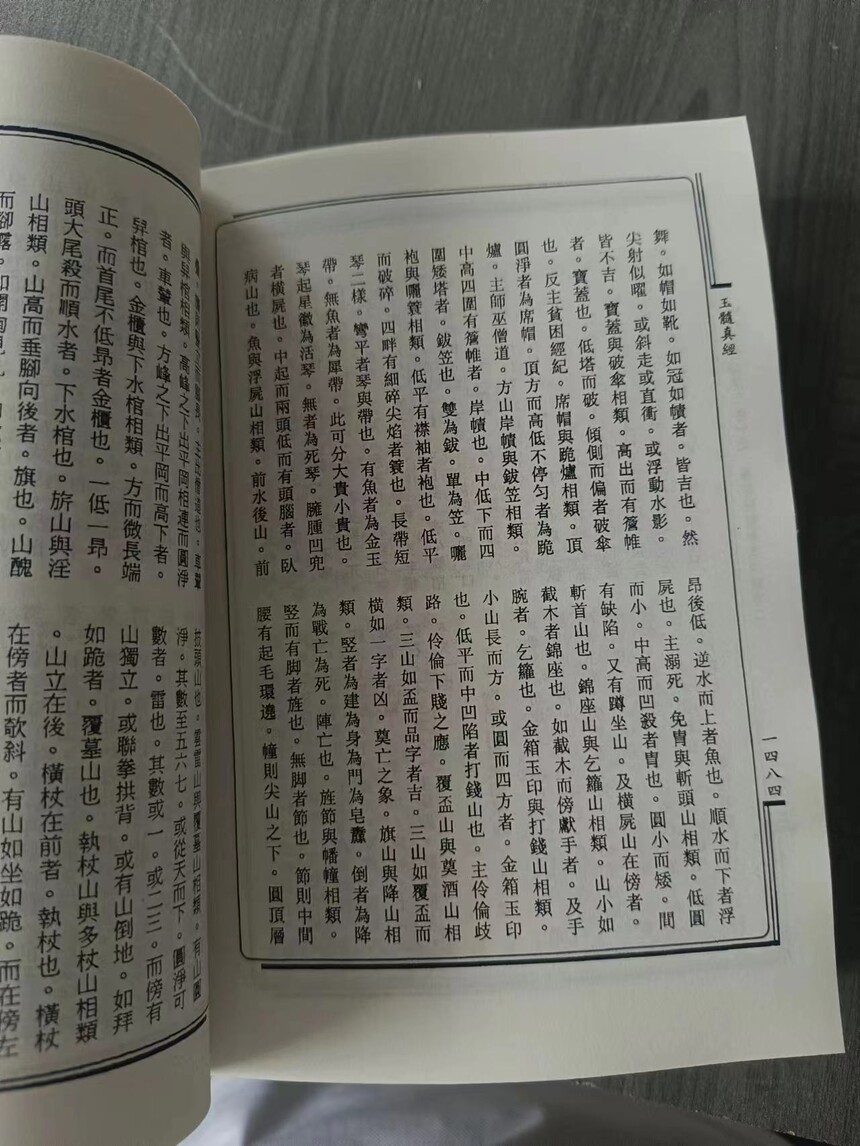 玉髓真經
一四八四
舞。如帽如靴。如冠如幘者。皆吉也。然
尖射似曜。或斜走或直衝。或浮動水影。
皆不吉。寶蓋與破傘相類。高出而有簷帷
者。寶蓋也。低塔而破。傾側而偏者破傘
也。反主貧困經紀。席帽與跪爐相類。頂
圓淨者為席帽。頂方而高低不停匀者為跪
爐。主師巫僧道。方山岸幘與鈸笠相類。
中高四圍有簷帷者。岸幘也。中低下而四
圍矮塔者。鈸笠也。雙為鈸。單為笠。曬
袍與曬簑相類。低平有襟袖者袍也。低平
而破碎。四畔有細碎尖焰者簑也。長帶短
琴二樣。彎平者琴與帶也。有魚者為金玉
帶。無魚者為犀帶。此可分大貴小貴也。
琴起星徽為活琴。無者為死琴。臃腫凹兜
者橫屍也。中起而兩頭低而有頭腦者。臥
病山也。魚與浮屍山相類。前水後山。前
昂後低。逆水而上者魚也。順水而下者浮
屍也。主溺死。免冑與斬頭山相類。低圓
而小。中高而凹殺者冑也。圓小而矮。間
有缺陷。又有蹲坐山。及橫屍山在傍者。
斬首山也。錦座山與乞籮山相類。山小如
截木者錦座也。如截木而傍獻手者。及手
腕者。乞籮也。金箱玉印與打錢山相類。
小山長而方。或圓而四方者。金箱玉印
也。低平而中凹陷者打錢山也。主伶倫歧
路。伶倫下賤之應。覆盃山與奠酒山相
類。三山如盃而品字者吉。三山如覆盃而
橫如一字者凶。奠亡之象。旗山與降山相
類。竪者為建為身為門為皂纛。倒者為降
為戰亡為死。陣亡也。旌節與幡幢相類。
竪而有脚者旌也。無脚者節也。節則中間
腰有起毛環遶。幢則尖山之下。圓頂層
與舁棺相類。高峰之下出平岡相連而圓淨
者。車輦也。方峰之下出平岡而高下者。
舁棺也。金櫃與下水棺相類。方而微長端
正。而首尾不低昂者金櫃也。一低一昂。
頭大尾殺而順水者。下水棺也。旂山與淫
山相類。山高而垂腳向後者。旗也。山醜
拔頭山也。雲雷山與覆墓山相類。有山圓
淨。其數至五六七。或從天而下。圓淨可
數者。雷也。其數或一。或二三。而傍有
山獨立。或聯拳拱背。或有山倒地。如拜
如跪者。覆墓山也。執杖山與多杖山相類
。山立在後。橫杖在前者。執杖也。橫杖
在傍者而欹斜。有山如坐如跪。而在傍左